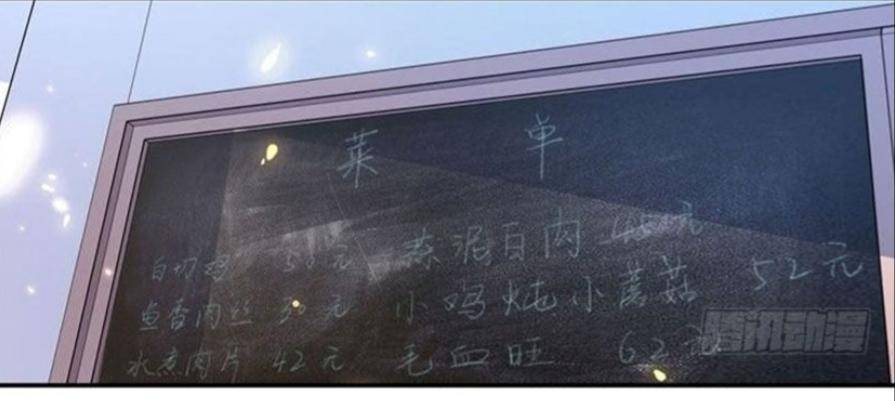 菜单
白切鸡 50元 蒜泥白肉 48元
鱼香肉丝 30元 小鸡炖小蘑菇 52元
水煮肉片 42元 毛血旺 62元
腾讯动漫